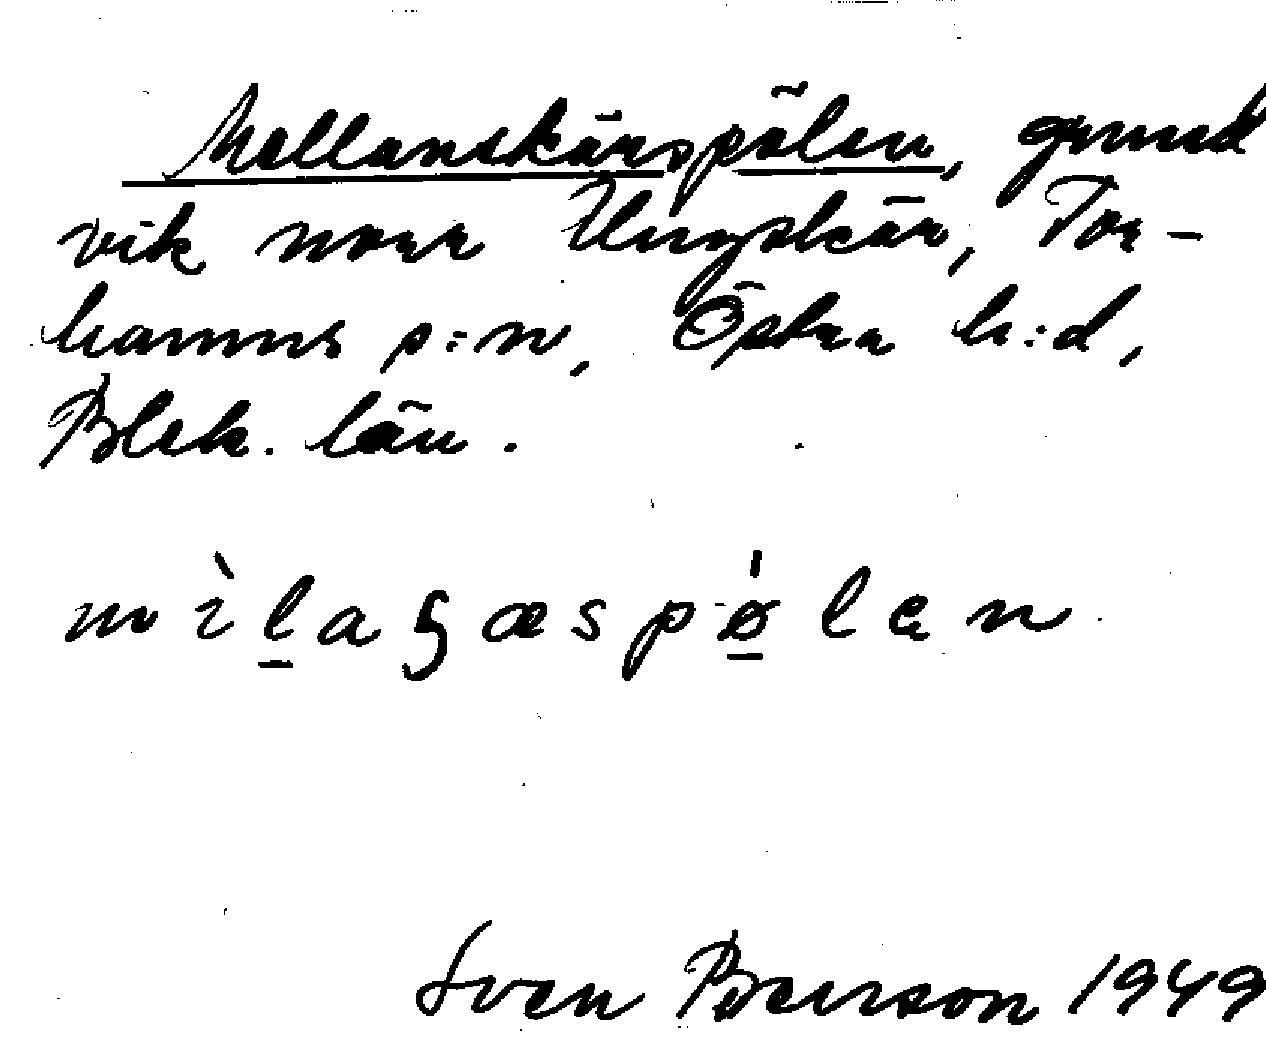 Mellanskärspölen, grund
vik norr Ungskär, Tor-
hamns s:n, Östra h:d,
Blek. län.
Sven Benson 1949